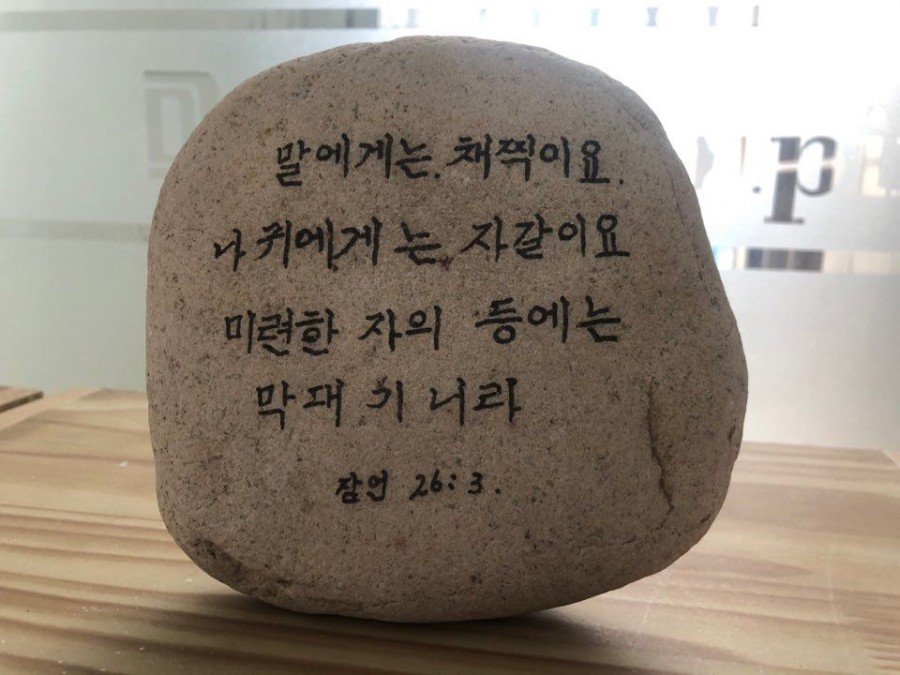 말에게는. 채찍이요.
나귀에게 는 자갈이요
미련한 자의 등에는
막대 기 니라
잠언 26:3.